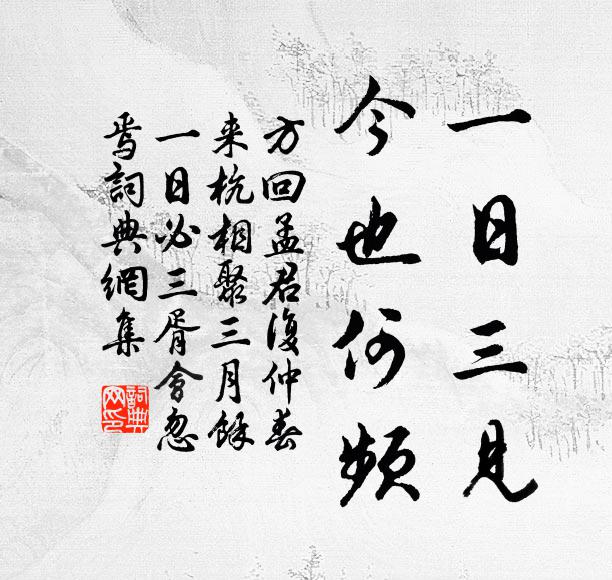 一日三見
今也何頻
方回孟君復仲春
来杭相聚三月餘
一日必三胥會忽
焉詞典網集
詞典
网印